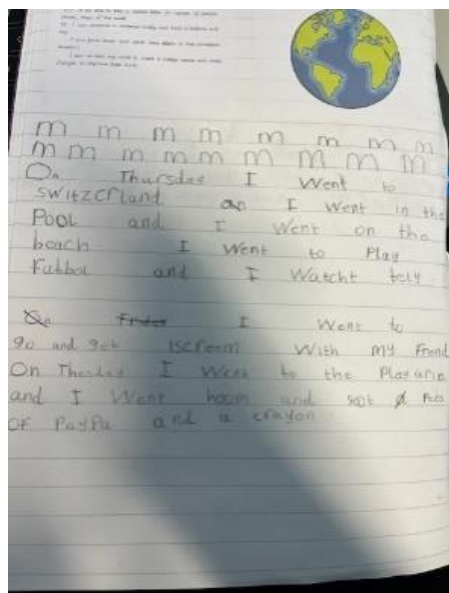 m m m m m m m m
m m m m m m m m m
On Thursday I Went to
Switzerland an I Went in the
Pool and I Went on the
beach I Went to Play
Futbol and I Watcht tely
On Friday I Went to
go and get iscreem With my Frend
On Thesday I Went to the Playarin
and I Went hoom and got a Pees
OF PayPa and a crayon